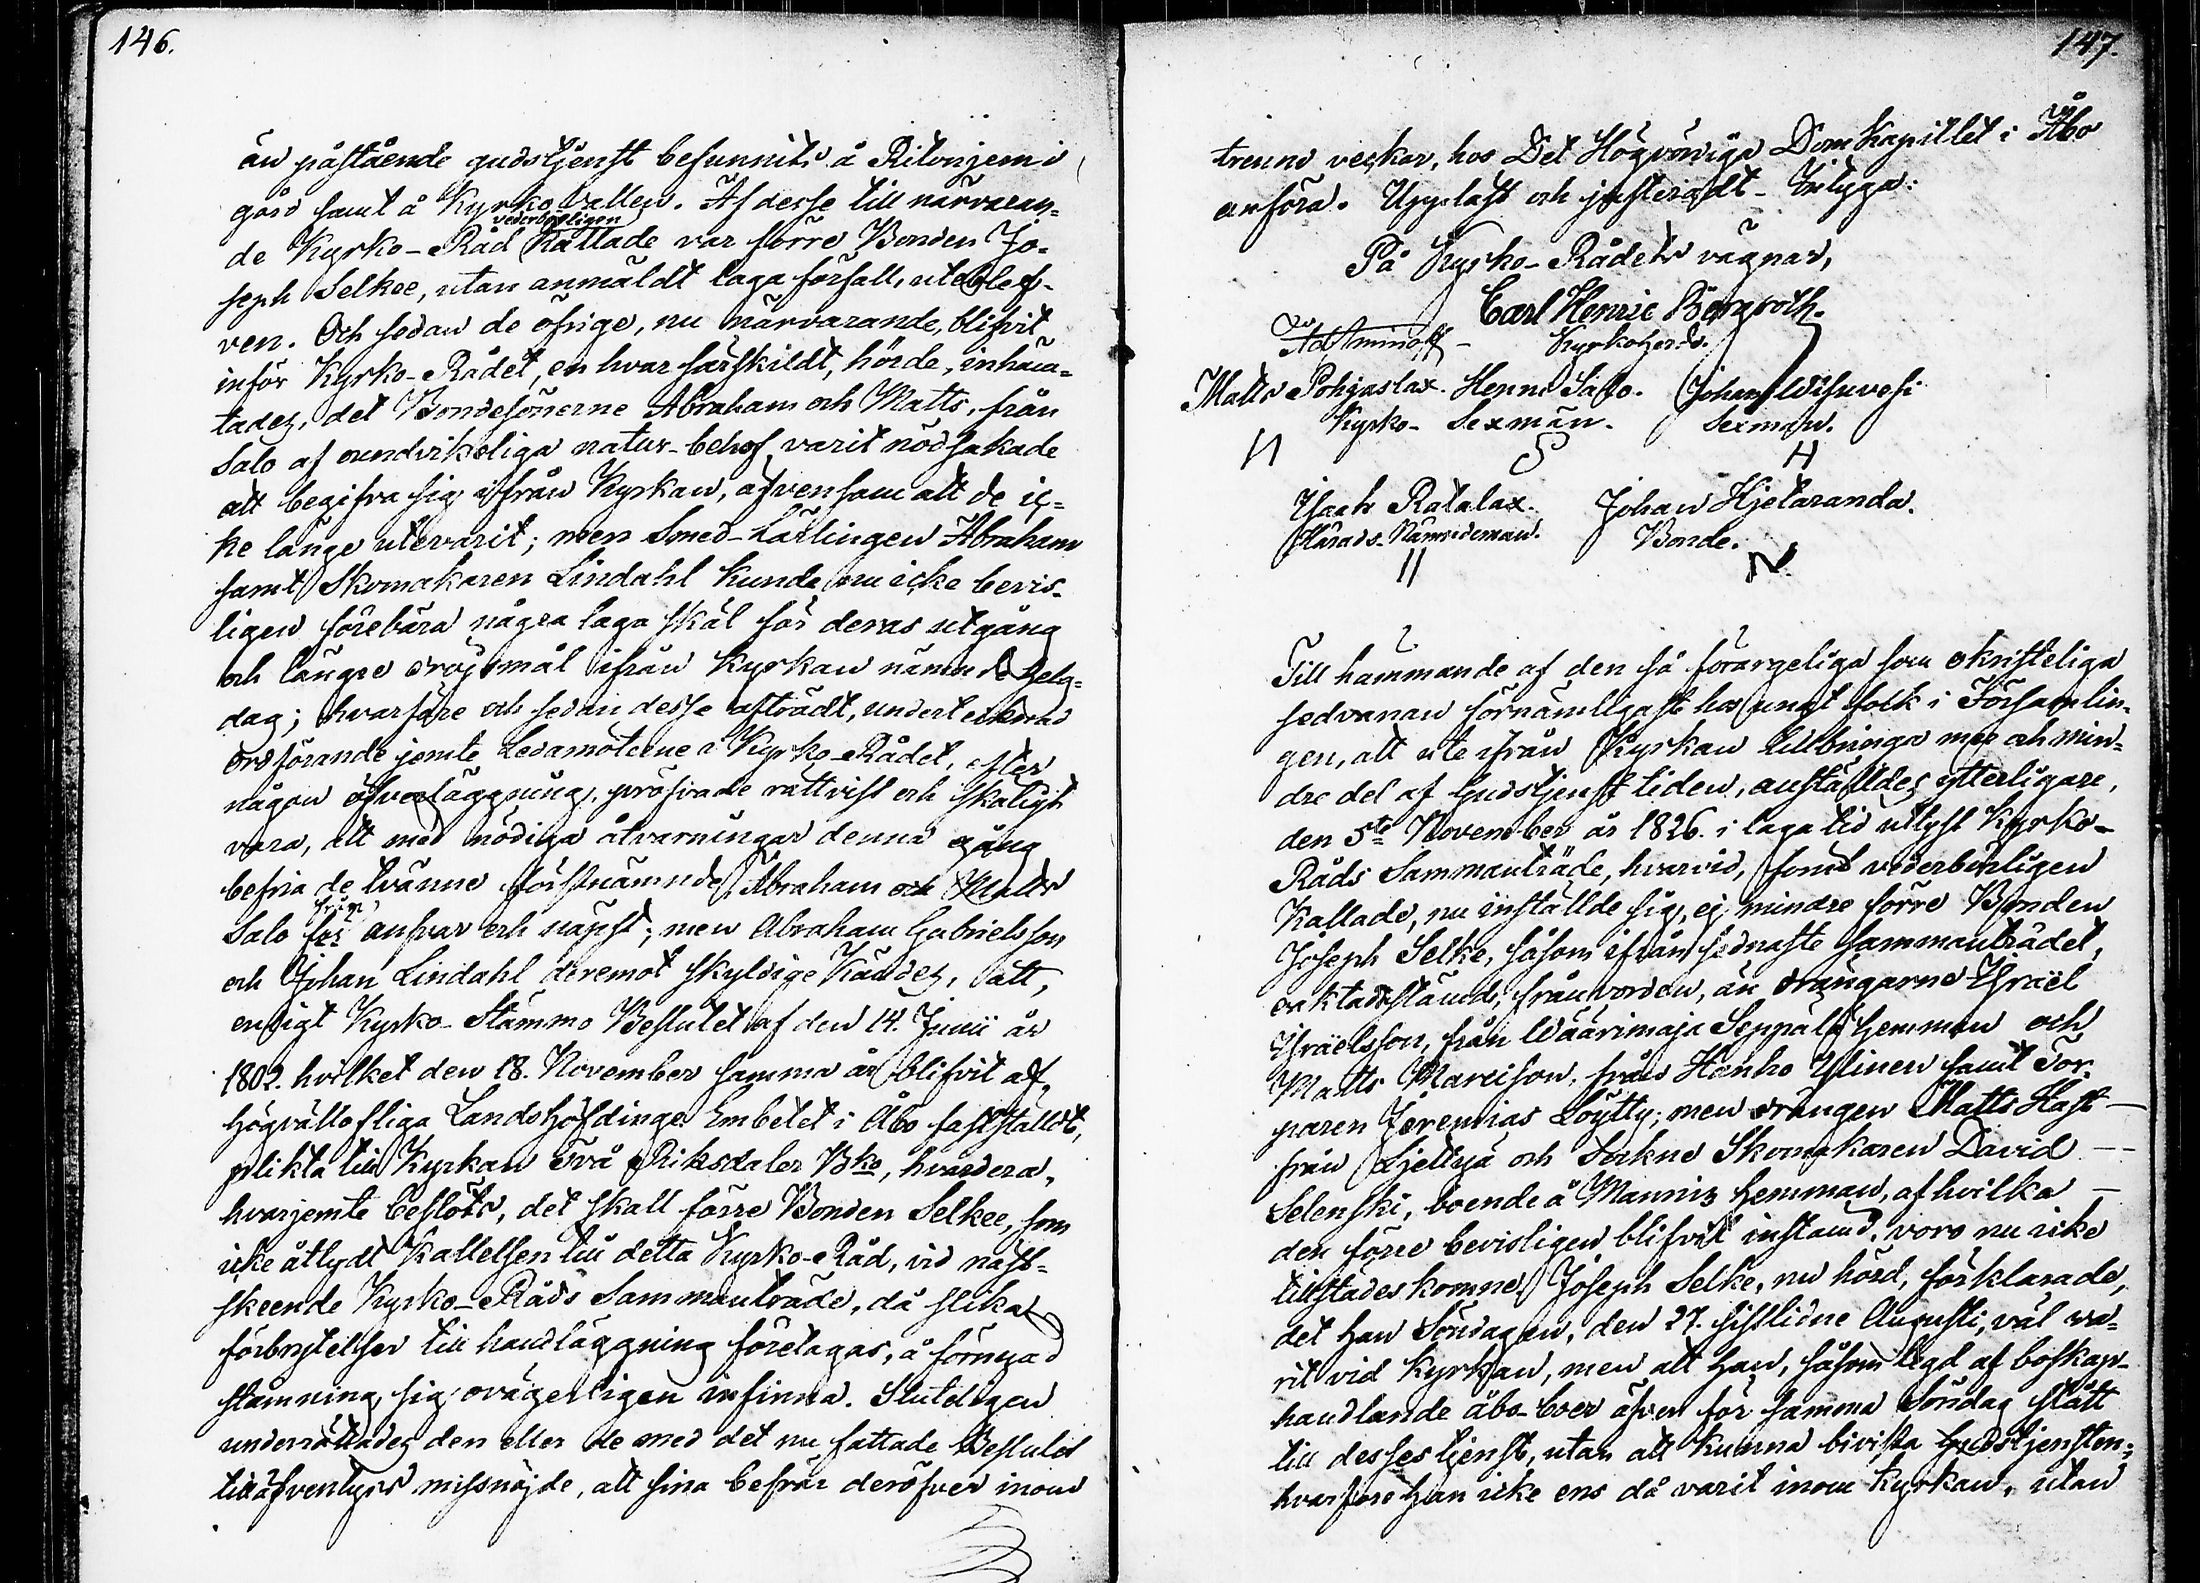 146.
än påstående gudstjenst befunnits å Ritvonjemi
gård samt å Kyrko Vallen. Af desse till närvaran-
de Kyrko-Råd vederbörligen Kallade var förre Bonden Jo-
seph Selkee, utan anmäldt laga förfall, uteblef-
ven. Och sedan de öfrige, nu närvarande, blifvit
inför Kyrko-Rådet, en hvar särskildt, hörde, inhäm-
tades, det Bondesönerne Abraham och Matts, från
Salo af oundvikeliga natur-behof varit nödsakade
att begifva sig ifrån Kyrkan, äfvensom att de ic-
ke länge utevarit; men Smed-Lärlingen Abraham
samt Skomakaren Lindahl kunde nu icke bevis-
ligen förebära några laga skäl för deras utgång
och längre dröjsmål ifrån Kyrkan nämnde helg-
dag; hvarföre och sedan desse afträdt, undertecknad
ordförande jemte Ledamöterne i Kyrko-Rådet, efter
någon öfverläggning, pröfvade rättvist och skäligt
vara, att med nödiga åtvarningar denna gång
befria de tvänne förstnämnde, Abraham och Matts
Salo från ansvar och näpst; men Abraham Gabrielsson
och Johan Lindahl deremot skyldige kändes, att,
enligt Kyrko-Stämmo Beslutet af den 14. Junii år
1802. hvilket den 18. November samma år blifvit af
högvällofliga Landshöfdinge Embetet i Åbo fastställdt,
plikta till Kyrkan två Riksdaler Bko, hvardera,
hvarjemte beslöts, det skall förre Bonden Selkee, som
icke åtlydt Kallelsen till detta Kyrko-Råd, vid näst-
skeende Kyrko-Råds Sammanträde, då slika
förbrytelser till handläggning företagas, å förnyad
stämning, sig ovägerligen infinna. Slutligen
underrättades den eller de med det nu fattade Beslutet
till äfventyrs missnöjde, att sina besvär deröfver inom
147.
trenne veckor, hos Det Högvördiga DomKapitlet i Åbo
anföra. Uppläst och justeradt - Intyga:
På Kyrko-Rådets vägnar,
Carl Henric Bergroth.
Kyrkoherde.
Ad Aminoff
Matts Pohjaslax. Henric Salo. Johan
Kyrko-Sexmän. Sexman.
Isaak Ratalax. Johan Hjetaranda.
Härads-Nämndeman. Bonde.
Till hämmande af den så förargeliga som okristeliga
sedvanan förnämligast hos ungt folk i Församlin-
gen, att ute ifrån Kyrkan tillbringa mer och min-
dre del af Gudstjenst tiden, anställdes ytterligare,
den 5te November år 1826. i laga tid utlyst Kyrko-
Råds Sammanträde, hvarvid, som vederbörligen
Kallade, nu inställde sig, ej mindre förre Bonden
Joseph Selke, såsom ifrån sednaste sammanträdet,
oaktadt stämd, frånvorden, än drängarne Israël
Israëlsson, från Wäärimaja Seppälä hemman och
Matts Marcison, från Hanho Ylinen samt Tor-
paren Jeremias Löytty; men drängen Matts Hast
från Ljettyä och Sockne Skomakaren David
Selenski, boende å Mannis hemman, af hvilka
den förre bevisligen blifvit instämd, voro nu icke
tillstädes komne. Joseph Selke, nu hörd, förklarade,
det han Söndagen, den 27. sistlidne Augusti, väl va-
rit vid Kyrkan, men att han, såsom legd af boskap-
handlande åbo-boer äfven för samma Söndag stått
till desses tjenst, utan att kunna bivista Gudstjensten;
hvarföre han icke ens då varit inom Kyrkan, utan